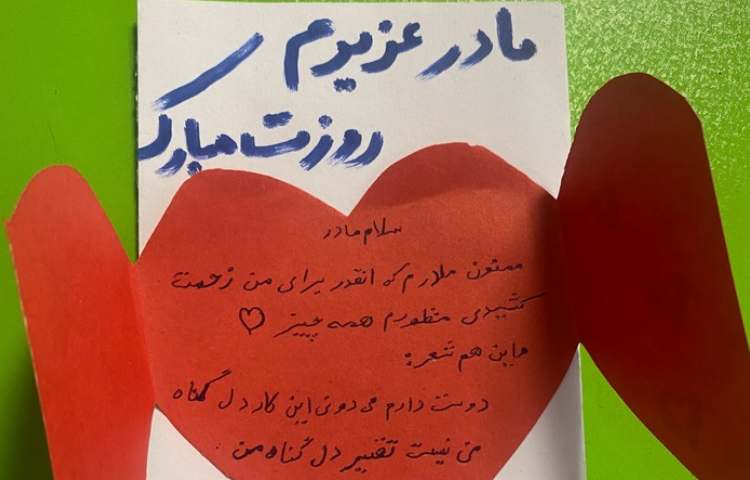 مادر عزیزم
روزت مبارک
سلام مادر
ممنون مادرم که انقدر برای من زحمت
کشیدی منظورم همه چییز ♡
و این هم شعر:
دوست دارم می دونی این کار دل گناه
من نیست تقصیر دل گناه من